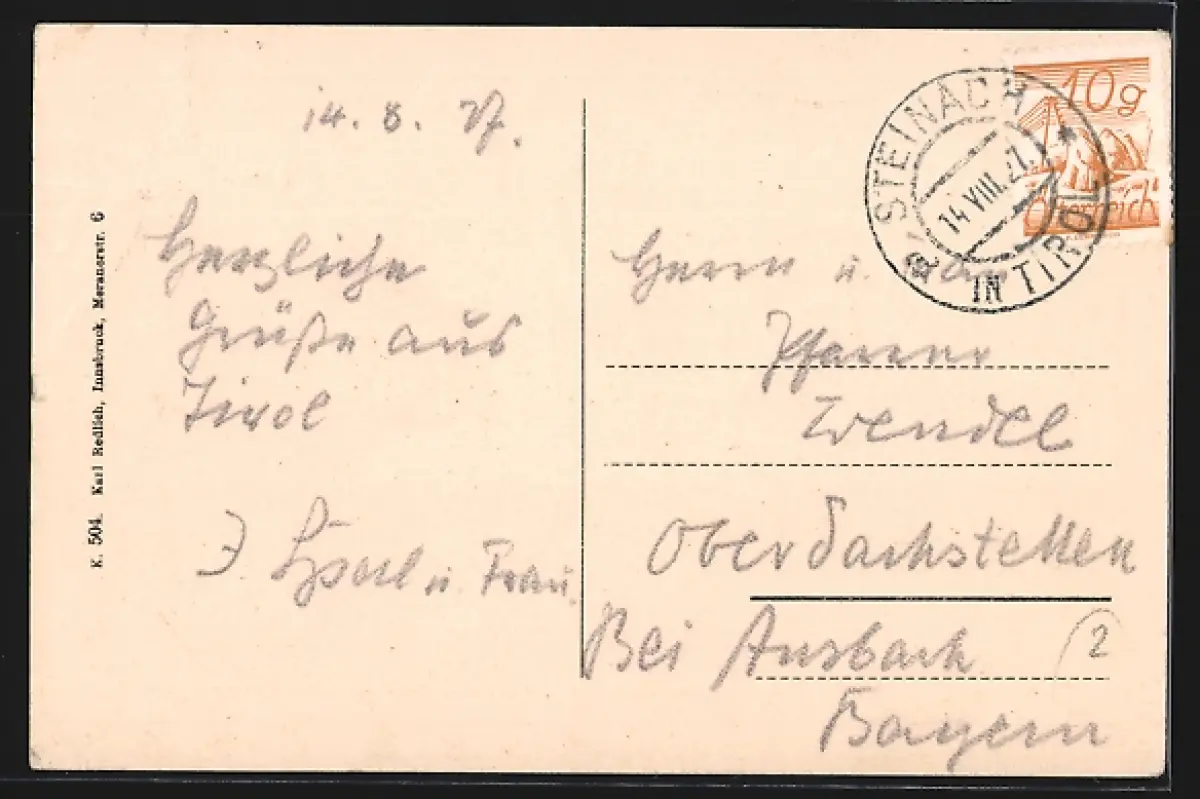 14. 8. 27.
Herzliche
Grüße aus
Tirol
u. Frau.
K. 504. Karl Redlich, Innsbruck, Meranerstr. 6
10g
Österreich
STEINACH
* IN TIROL
14.VIII.27.
Herrn u.
Pfarrer
Wendel
Oberdachstetten
Bei Ansbach
Bayern
2